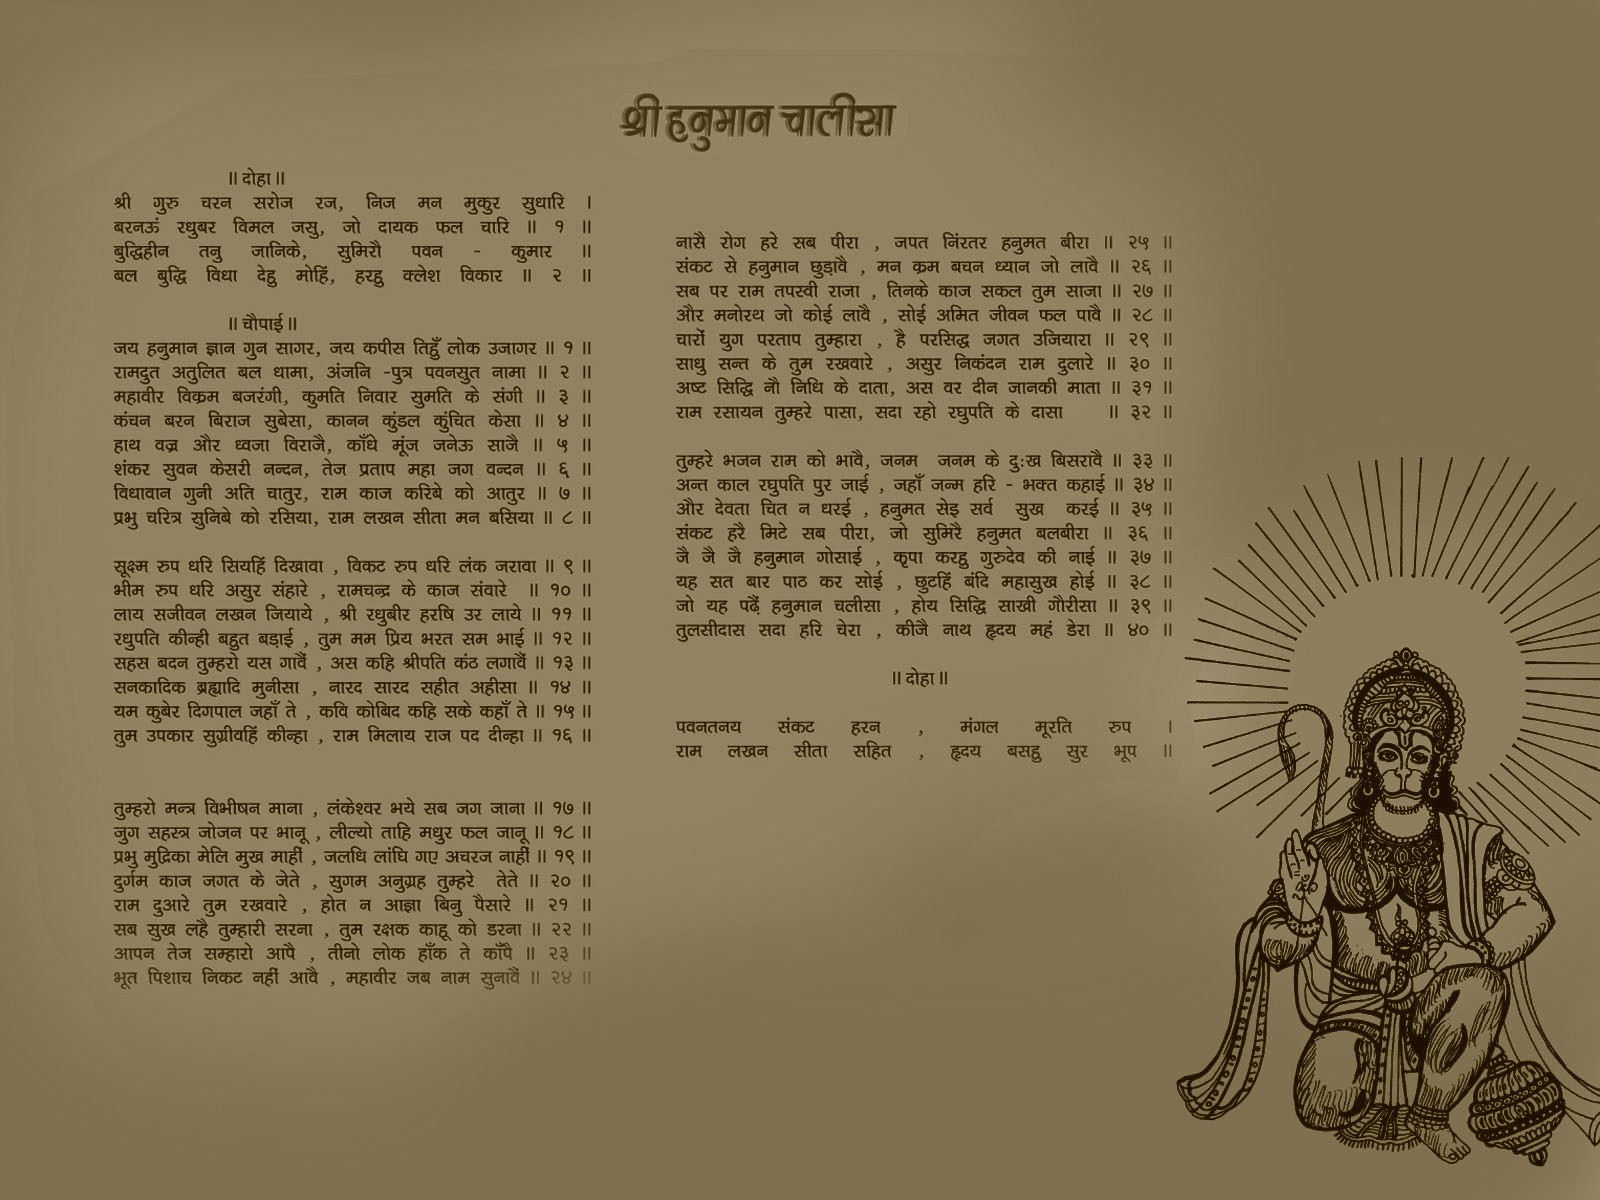 श्री हनुमान चालीसा
॥ दोहा ॥
श्री गुरु चरन सरोज रज, निज मन मुकुर सुधारि ।
बरनऊं रधुबर विमल जसु, जो दायक फल चारि ॥ १ ॥
बुद्धिहीन तनु जानिके, सुमिरौ पवन - कुमार ॥
बल बुद्धि विधा देहु मोहिं, हरहु क्लेश विकार ॥ २ ॥
॥ चौपाई ॥
जय हनुमान ज्ञान गुन सागर, जय कपीस तिहुँ लोक उजागर ॥ १ ॥
रामदुत अतुलित बल धामा, अंजनि -पुत्र पवनसुत नामा ॥ २ ॥
महावीर विक्रम बजरंगी, कुमति निवार सुमति के संगी ॥ ३ ॥
कंचन बरन बिराज सुबेसा, कानन कुंडल कुंचित केसा ॥ ४ ॥
हाथ वज्र और ध्वजा विराजै, काँधे मूंज जनेऊ साजै ॥ ५ ॥
शंकर सुवन केसरी नन्दन, तेज प्रताप महा जग वन्दन ॥ ६ ॥
विधावान गुनी अति चातुर, राम काज करिबे को आतुर ॥ ७ ॥
प्रभु चरित्र सुनिबे को रसिया, राम लखन सीता मन बसिया ॥ ८ ॥
सूक्ष्म रुप धरि सियहिं दिखावा , विकट रुप धरि लंक जरावा ॥ ९ ॥
भीम रुप धरि असुर संहारे , रामचन्द्र के काज संवारे ॥ १० ॥
लाय सजीवन लखन जियाये , श्री रधुबीर हरषि उर लाये ॥ ११ ॥
रधुपति कीन्ही बहुत बड़ाई , तुम मम प्रिय भरत सम भाई ॥ १२ ॥
सहस बदन तुम्हरो यस गावैं , अस कहि श्रीपति कंठ लगावैं ॥ १३ ॥
सनकादिक ब्रह्मादि मुनीसा , नारद सारद सहीत अहीसा ॥ १४ ॥
यम कुबेर दिगपाल जहाँ ते , कवि कोबिद कहि सके कहाँ ते ॥ १५ ॥
तुम उपकार सुग्रीवहिं कीन्हा , राम मिलाय राज पद दीन्हा ॥ १६ ॥
तुम्हरो मन्त्र विभीषन माना , लंकेश्वर भये सब जग जाना ॥ १७ ॥
जुग सहस्त्र जोजन पर भानू , लील्यो ताहि मधुर फल जानू ॥ १८ ॥
प्रभु मुद्रिका मेलि मुख माहीं , जलधि लांघि गए अचरज नाहीं ॥ १९ ॥
दुर्गम काज जगत के जेते , सुगम अनुग्रह तुम्हरे तेते ॥ २० ॥
राम दुआरे तुम रखवारे , होत न आज्ञा बिनु पैसारे ॥ २१ ॥
सब सुख लहै तुम्हारी सरना , तुम रक्षक काहू को डरना ॥ २२ ॥
आपन तेज सम्हारो आपै , तीनो लोक हाँक ते काँपै ॥ २३ ॥
भूत पिशाच निकट नहीं आवै , महावीर जब नाम सुनावैं ॥ २४ ॥
नासै रोग हरे सब पीरा , जपत निंरतर हनुमत बीरा ॥ २५ ॥
संकट से हनुमान छुड़ावै , मन क्रम बचन ध्यान जो लावै ॥ २६ ॥
सब पर राम तपस्वी राजा , तिनके काज सकल तुम साजा ॥ २७ ॥
और मनोरथ जो कोई लावै , सोई अमित जीवन फल पावै ॥ २८ ॥
चारों युग परताप तुम्हारा , है परसिद्ध जगत उजियारा ॥ २९ ॥
साधु सन्त के तुम रखवारे , असुर निकंदन राम दुलारे ॥ ३० ॥
अष्ट सिद्धि नौ निधि के दाता, अस वर दीन जानकी माता ॥ ३१ ॥
राम रसायन तुम्हरे पासा, सदा रहो रघुपति के दासा ॥ ३२ ॥
तुम्हरे भजन राम को भावै, जनम जनम के दुःख बिसरावै ॥ ३३ ॥
अन्त काल रघुपति पुर जाई , जहाँ जन्म हरि - भक्त कहाई ॥ ३४ ॥
और देवता चित न धरई , हनुमत सेइ सर्व सुख करई ॥ ३५ ॥
संकट हरै मिटे सब पीरा, जो सुमिरै हनुमत बलबीरा ॥ ३६ ॥
जै जै जै हनुमान गोसाई , कृपा करहु गुरुदेव की नाई ॥ ३७ ॥
यह सत बार पाठ कर सोई , छुटहिं बंदि महासुख होई ॥ ३८ ॥
जो यह पढ़ैं हनुमान चलीसा , होय सिद्धि साखी गौरीसा ॥ ३९ ॥
तुलसीदास सदा हरि चेरा , कीजै नाथ हृदय महं डेरा ॥ ४० ॥
॥ दोहा ॥
पवनतनय संकट हरन , मंगल मूरति रुप ।
राम लखन सीता सहित , हृदय बसहु सुर भूप ॥